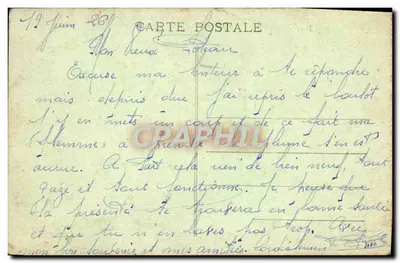 19 Juin 26
CARTE POSTALE
Mon Vieux
Excuse ma lenteur à te répondre
mais depuis que j'ai repris le boulot
j'y en mets un coup et de ce fait ma
flemme à prendre plume s'en est
accrue. A part cela rien de bien neuf, tout
gaze et tout fonctionne. Je pense que
la présente te trouvera en bonne santé
et que tu n'en baves pas trop.
mon bon souvenir et mes amitiés. Cordialement
CPAPHIL